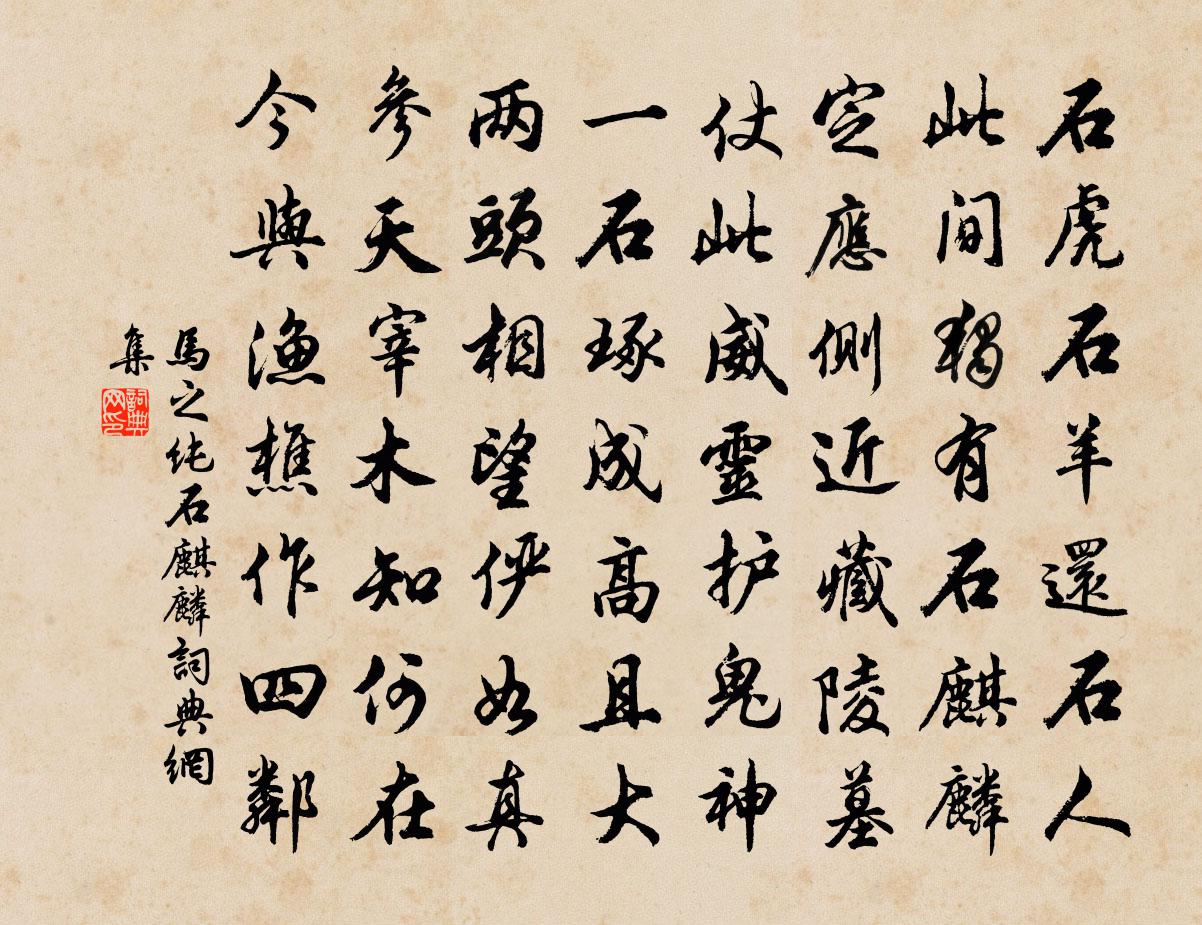 石虎石羊還石人
此间獨有石麒麟
定應側近藏陵墓
仗此威靈护鬼神
一石琢成高且大
两頭相望俨如真
參天宰木知何在
今與漁樵作四鄰
馬之纯石麒麟詞典網
集
詞典网印